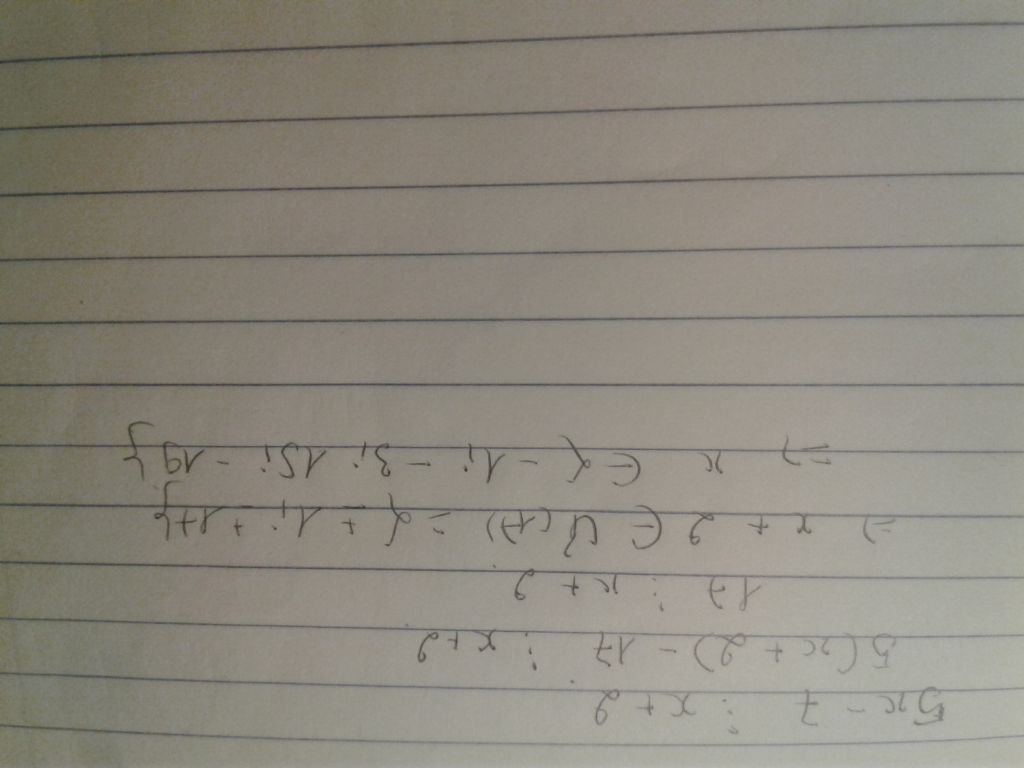 5x - 7 ⋮ x + 2
5(x + 2) - 17 ⋮ x + 2
17 ⋮ x + 2
=> x + 2 ∈ Ư(17) = { ± 1; ± 17}
=> x ∈ { - 1; - 3; 15; - 19}